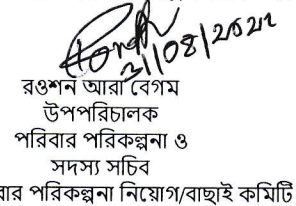 31/08/2022
রওশন আরা বেগম
উপপরিচালক
পরিবার পরিকল্পনা ও
সদস্য সচিব
বার পরিকল্পনা নিয়োগ/বাছাই কমিটি